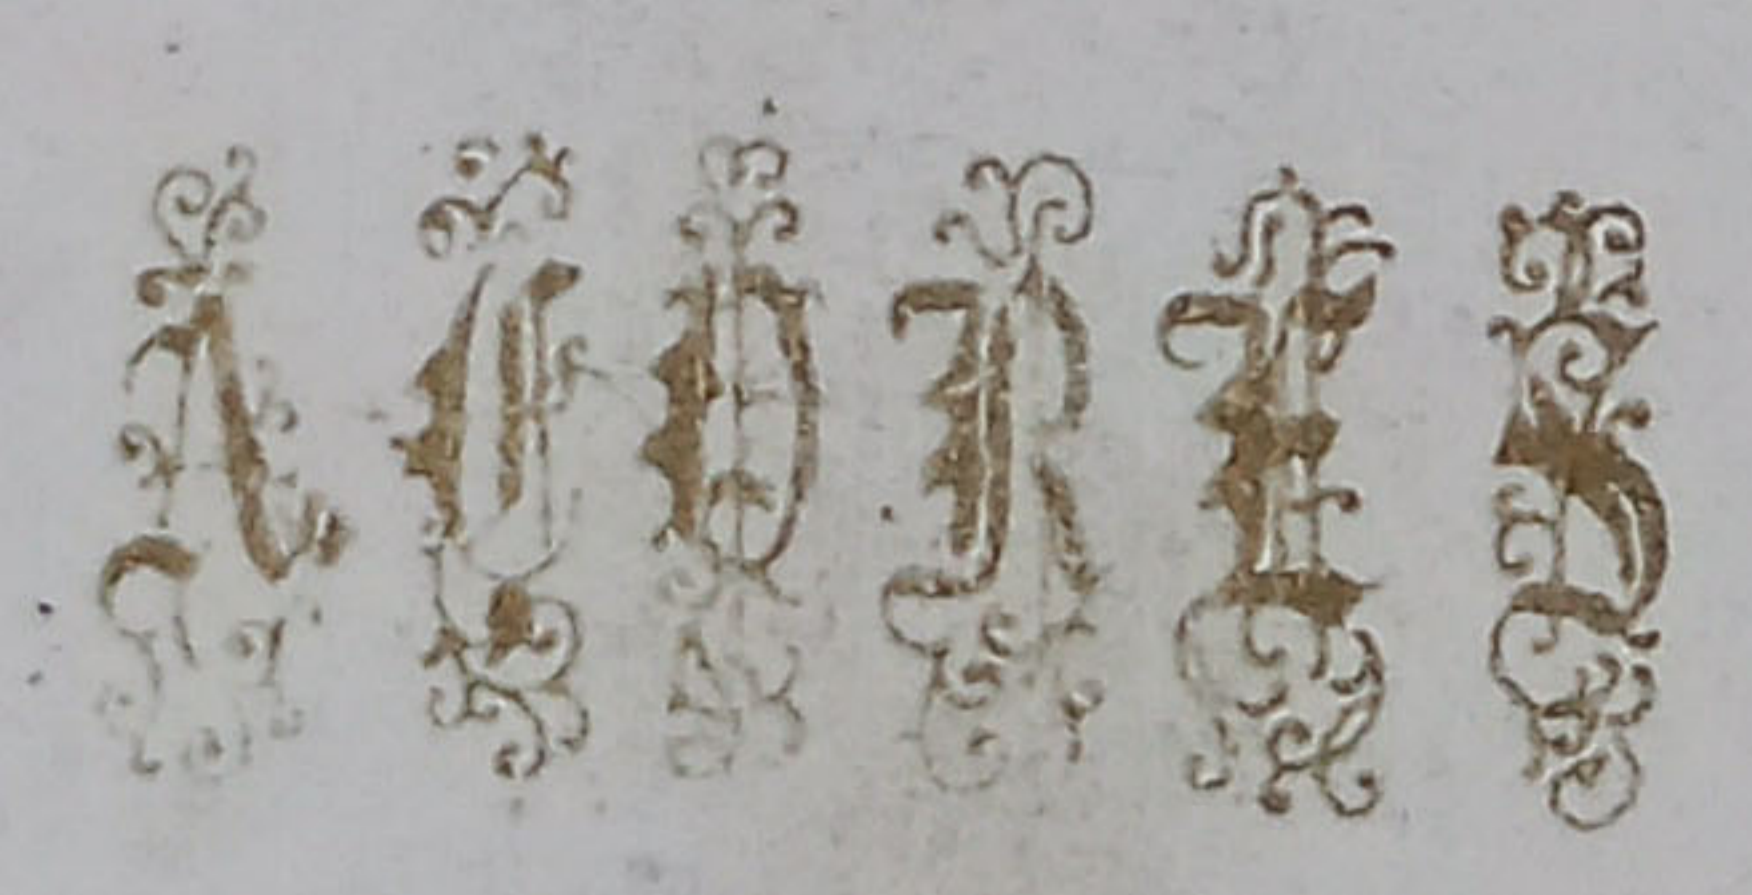 AÇORES